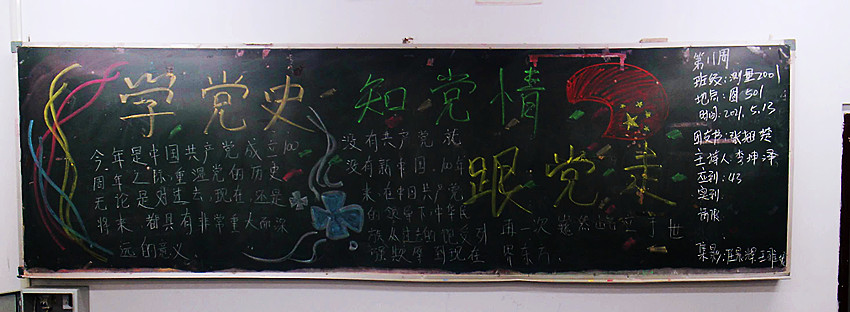 学党史 知党情
跟党走
今年是中国共产党成立100
周年之际,重温党的历史
无论是对过去,现在,还是
将来,都具有非常重大而深
远的意义
没有共产党就
没有新中国,100年
来在中国共产党
的领导下中华民
族从过去的饱受列
强欺辱到现在
再一次巍然屹立于世
界东方.
第11周
班级:测量2001
地点:图501
时间:2021.5.13
团支书:张
主持人:李坤泽
应到:43
实到: